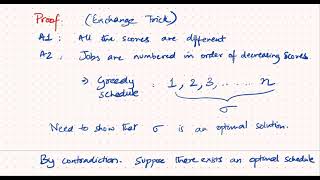 Proof. (Exchange Trick)
A1: All the scores are different
A2: Jobs are numbered in order of decreasing scores.
⇒ Greedy schedule : 1, 2, 3, ..... n
σ
Need to show that σ is an optimal solution.
By contradiction. Suppose there exists an optimal schedule